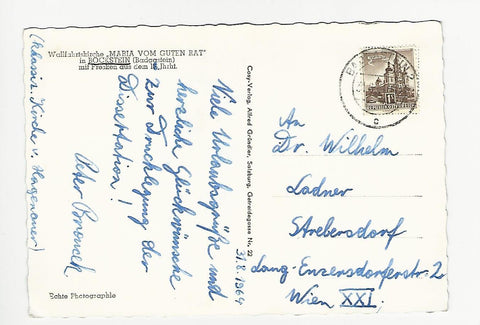 Wallfahrtskirche „MARIA VOM GUTEN RAT"
in BÖCKSTEIN (Badgastein)
mit Fresken aus dem 18. Jhrht.
(klassiz. Kirche v. Hagenauer)
Viele Urlaubsgrüße und
herzliche Glückwünsche
zur Drucklegung der
Dissertation!
Peter
31.8.1964
Echte Photographie
Cosy-Verlag, Alfred Gründler, Salzburg, Getreidegasse Nr. 22
An
Dr. Wilhelm
Ladner
Strebersdorf
Lang-Enzersdorferstr. 2
Wien XXI.